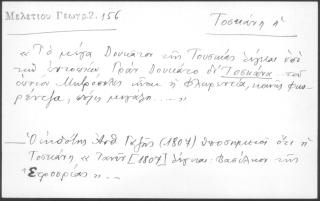 Μελετίου Γεωγρ. 2. 156
Τοσκάνη ἡ
« Τὸ μέγα Δουκάτον τῆς Τουσκίας λέγεται ὑπὸ
τῶν ἐντοπίων Γρὰν Δουκάτο δι Τοσκάνα τοῦ
ὁποίου Μητρόπολις εἶναι ἡ Φλωρεντία, κοινῶς Φιο-
ρέντζα, πόλις μεγάλη ... »
Ὁ ἐκδότης Ἀνθ Γαζῆς (1807) ὑποσημειοῖ ὅτι ἡ
Τοσκάνη « Τανῦν [1807] λέγεται Βασίλειον τῆς
Ἑτρουρίας » .